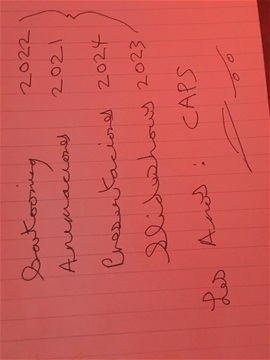 Cartooning 2022
Animaciones 2021
Presentaciones 2024
Slideshows 2023
Les Amo!: CAPS